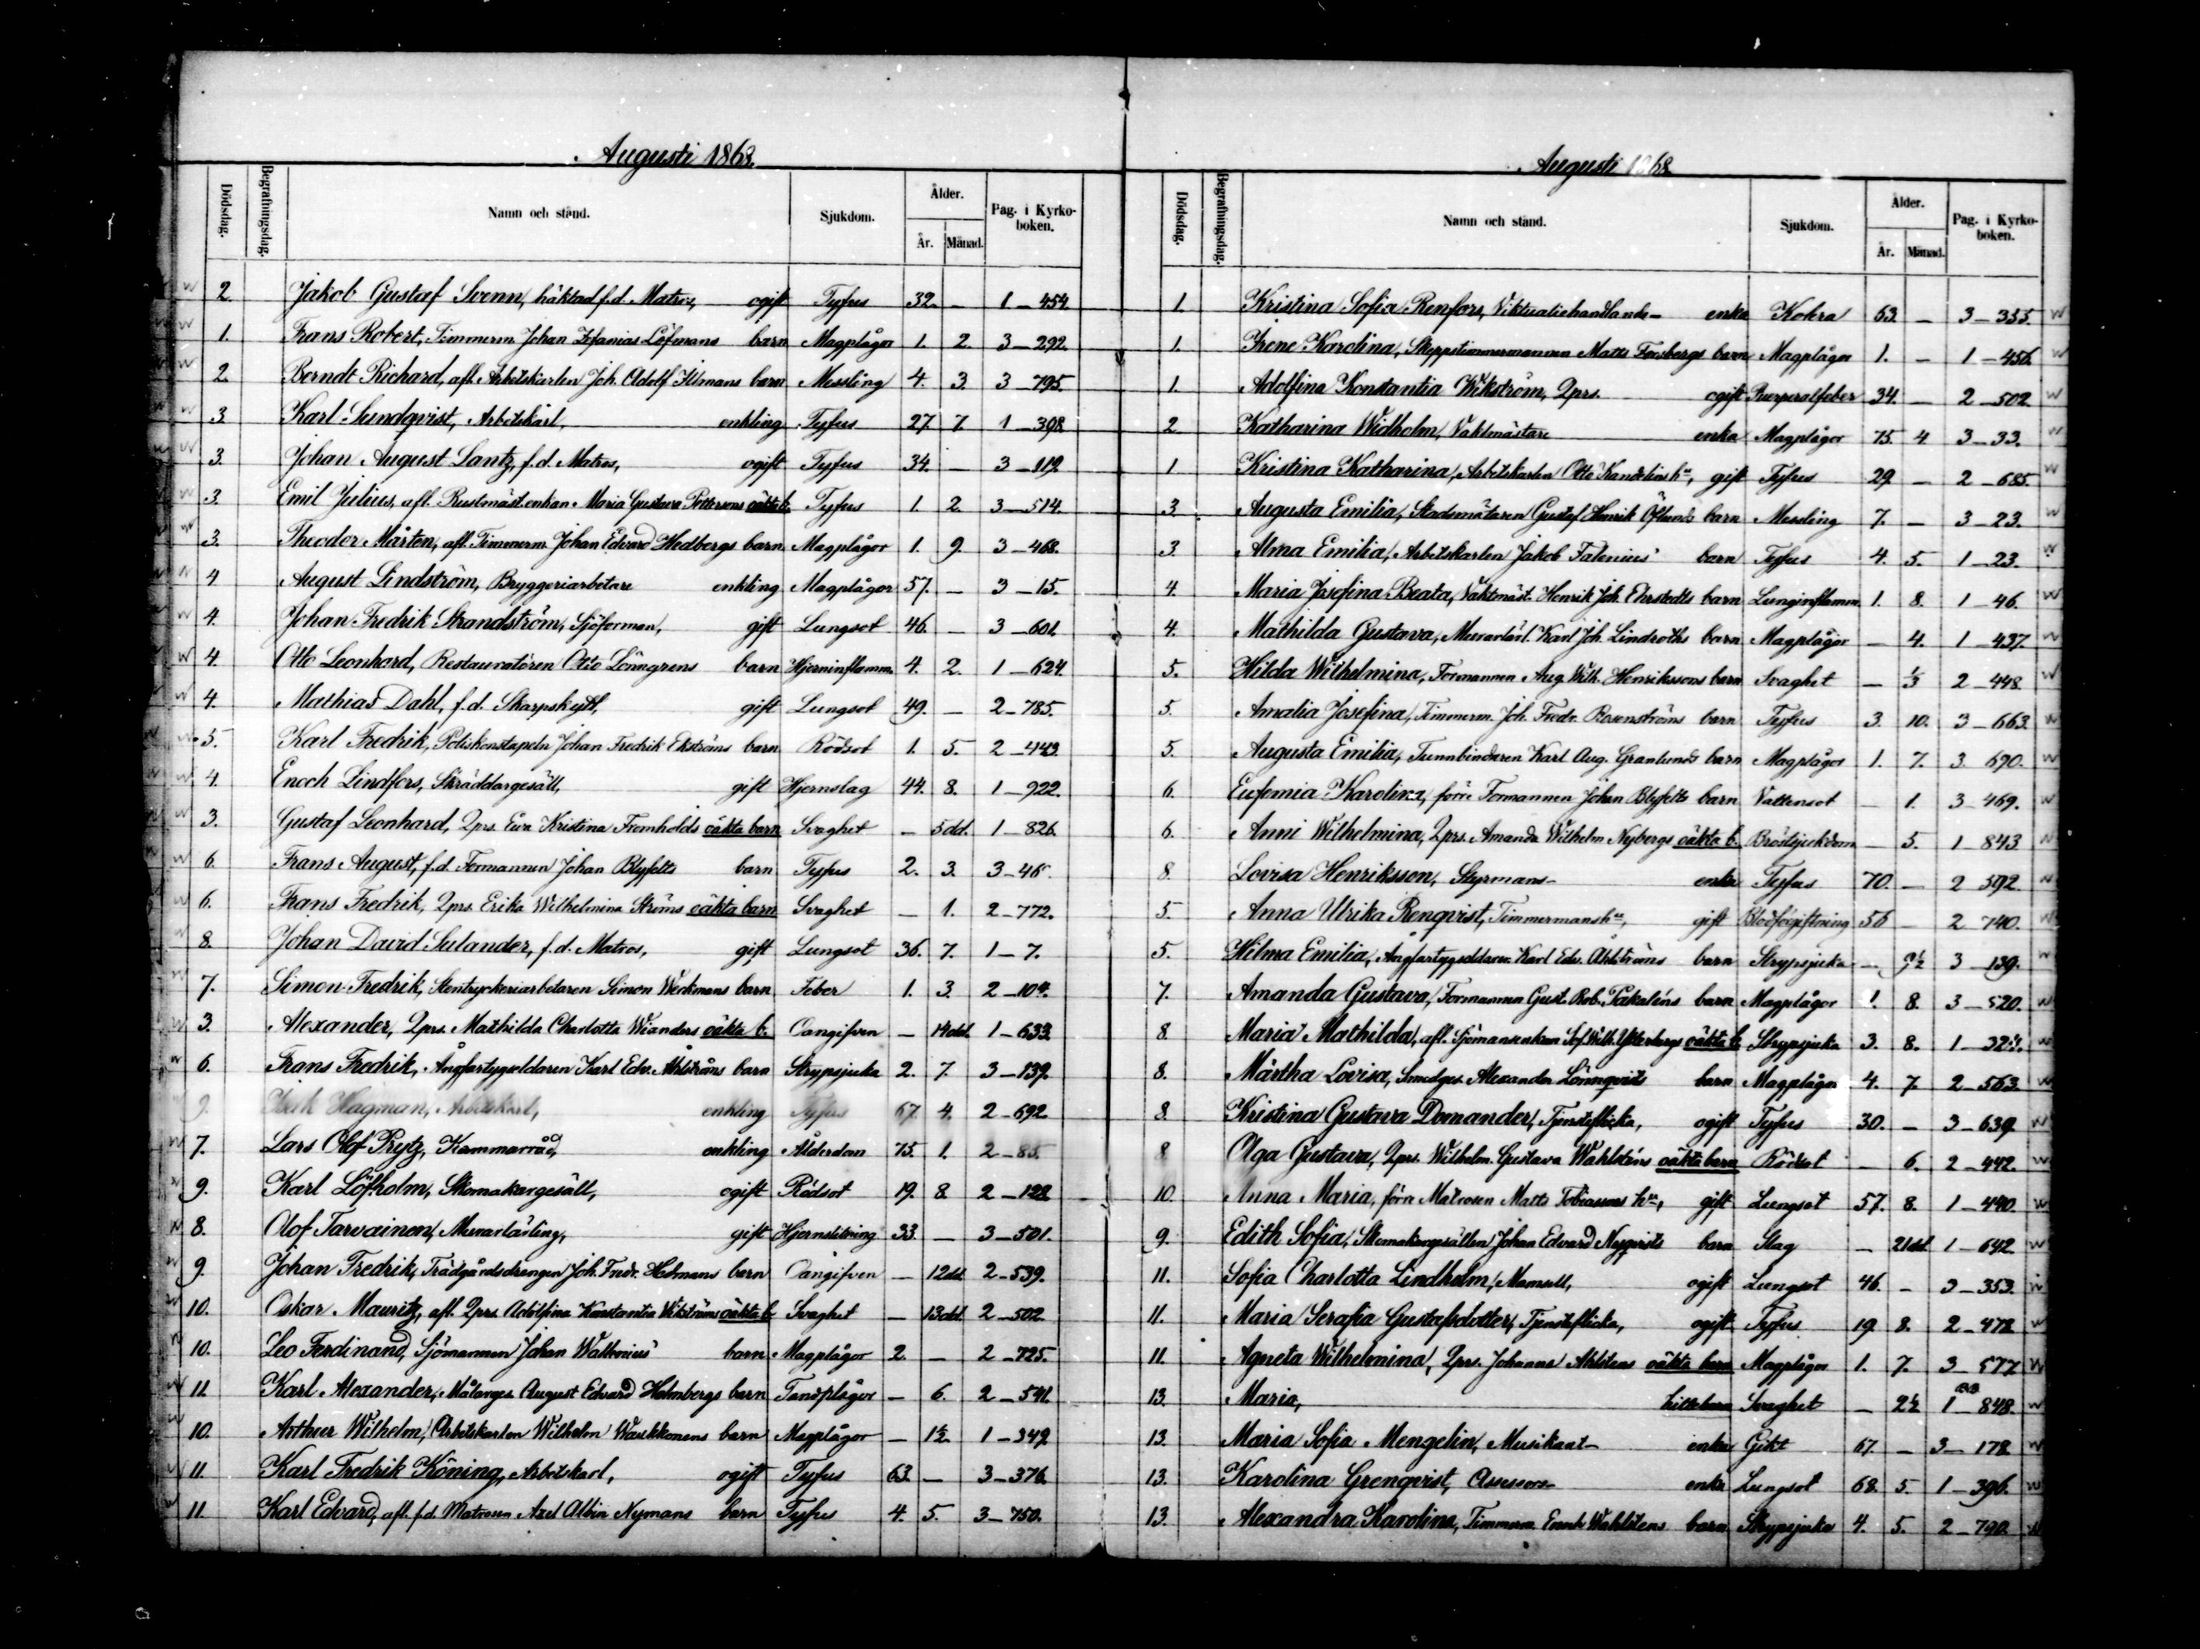 Augusti 1868.
Dödsdag. Begrafningsdag. Namn och stånd. Sjukdom. Ålder. År. Månad. Pag. i Kyrko-boken.
2 Jakob Gustaf Svenn, häktad f.d. Matros, ogift Tyfus 32. — 1 — 454
1. Frans Robert, Timmerm. Johan Zefanias Löfmans barn Magplågor 1. 2. 3 — 292
2. Berndt Richard, afl. Arbetskarlen Joh. Adolf Ilmans barn Messling 4. 3. 3 — 795.
3. Karl Sundqvist, Arbetskarl, enkling Tyfus 27. 7. 1 — 398
3. Johan August Lantz, f.d. Matros, ogift Tyfus 34. — 3 — 119.
3. Emil Julius, afl. Rustmäst.enkan Maria Gustava Pettersons oäkta b. Tyfus 1. 2. 3 — 514.
3. Theodor Mårten, afl. Timmerm. Johan Edvard Hedbergs barn Magplågor 1. 9. 3 — 468.
4 August Lindström, Bryggeriarbetare enkling Magplågor 57. — 3 — 15.
4. Johan Fredrik Strandström, Sjöforman, gift Lungsot 46. — 3 — 601.
4. Otto Leonhard, Restauratören Otto Lönngrens barn Hjerninflamm. 4. 2. 1 — 624.
4. Mathias Dahl, f.d. Skarpskytt, gift Lungsot 49. — 2 — 785.
5. Karl Fredrik, Poliskonstapeln Johan Fredrik Ekströms barn Rödsot 1. 5. 2 — 443.
4. Enoch Lindfors, Skräddargesäll, gift Hjernslag 44. 8. 1 — 922.
3. Gustaf Leonhard, Qprs. Eva Kristina Fromholds oäkta barn Svaghet — 5 dd. 1 — 826.
6. Frans August, f.d. Formannen Johan Blyfelts barn Tyfus 2. 3. 3 — 46
6. Frans Fredrik, Qprs. Erika Wilhelmina Ströms oäkta barn Svaghet — 1. 2 — 772.
8. Johan David Sulander, f.d. Matros, gift Lungsot 36. 7. 1 — 7.
7. Simon Fredrik, Stentryckeriarbetaren Simon Weckmans barn Feber 1. 3. 2 — 104.
3. Alexander, Qprs. Mathilda Charlotta Wianders oäkta b. Oangifven — 14 dd. 1 — 633.
6. Frans Fredrik, Ångfartygseldaren Karl Edv. Åhlströms barn Strypsjuka 2. 7. 3 — 139.
9. Hagman, Arbetskarl, enkling Tyfus 67. 4. 2 — 692
7. Lars Olof Prytz, Kammarråd, enkling Ålderdom 75. 1. 2 — 85.
9. Karl Löfholm, Skomakargesäll, ogift Rödsot 19. 8. 2 — 128
8. Olof Tarvainen, Murarlärling, gift Hjernslitning 33. — 3 — 501.
9. Johan Fredrik, Trädgårdsdrengen Joh. Fredr. Hedmans barn Oangifven — 12 dd. 2 — 539.
10. Oskar Mauritz, afl. Qprs. Adolfina Konstantia Wikströms oäkta b. Svaghet — 13 dd. 2 — 502
10. Leo Ferdinand, Sjömannen Johan Waltonius' barn Magplågor 2. — 2 — 725.
11. Karl Alexander, Målarges. August Edvard Holmbergs barn Tandplågor — 6. 2 — 541.
10. Arthur Wilhelm, Arbetskarlen Wilhelm Waukkonens barn Magplågor — 1½ 1 — 349.
11. Karl Fredrik Köning, Arbetskarl, ogift Tyfus 63. — 3 — 376.
11. Karl Edvard, afl. f.d. Matrosen Axel Albin Nymans barn Tyfus 4. 5. 3 — 750.
Augusti 1868
Dödsdag. Begrafningsdag. Namn och stånd. Sjukdom. Ålder. År. Månad. Pag. i Kyrko-boken.
1. Kristina Sofia Renfors, Viktualiehandlande- enka Kolera 63. — 3 — 355.
1. Irene Karolina, Skeppstimmermannen Matts Forsbergs barn Magplågor 1. — 1 — 456.
1. Adolfina Konstantia Wikström, Qprs. ogift Puerperalfeber 34. — 2 — 502
2. Katharina Widholm, Vaktmästare enka Magplågor 75. 4 3 — 33.
1 Kristina Katharina, Arbetskarlen Otto Kandelins hu, gift Tyfus 29. — 2 — 685.
3. Augusta Emilia, Stadsmätaren Gustaf Henrik Öhlunds barn Messling 7. — 3 — 23.
3. Alma Emilia, Arbetskarlen Jakob Falenius' barn Tyfus 4. 5. 1 — 23.
4. Maria Josefina Beata, Vaktmäst. Henrik Joh. Ehrstedts barn Lunginflamm. 1. 8. 1 — 46.
4. Mathilda Gustava, Murarlärl. Karl Joh. Lindroths barn Magplågor — 4. 1 — 437.
5. Hilda Wilhelmina, Formannen Aug. Wilh. Henrikssons barn Svaghet — ⅓ 2 — 448.
5. Amalia Josefina, Timmerm. Joh. Fredr. Rosenströms barn Tyfus 3. 10. 3 — 663.
5. Augusta Emilia, Tunnbindaren Karl Aug. Granlunds barn Magplågor 1. 7. 3. 690.
6. Eufemia Karolina, förre Formannen Johan Blyfelts barn Vattensot — 1. 3 — 469.
6. Anni Wilhelmina, Qprs. Amanda Wilhelm. Nybergs oäkta b. Bröstsjukdom — 5. 1 — 843
8. Lovisa Henriksson, Styrmans- enka Tyfus 70. — 2 392.
5. Anna Ulrika Renqvist, Timmermanshu, gift Blodförgiftning 56 — 2 740.
5. Hilma Emilia, Ångfartygseldaren Karl Edv. Åhlströms barn Strypsjuka — 9½ 3 — 139.
7. Amanda Gustava, Formannen Gust. Rob. Takaléns barn Magplågor 1. 8. 3 — 520.
8. Maria Mathilda, afl. Sjömansenkan Sof. Wilh. Ytterbergs oäkta b. Strypsjuka 3. 8. 1 — 324.
8. Märtha Lovisa, Smedges. Alexander Lönnqvists barn Magplågor 4. 7 2 — 563.
8. Kristina Gustava Domander, Tjensteflicka, ogift Tyfus 30. — 3 — 639
8 Olga Gustava, Qprs. Wilhelm. Gustava Wahlsténs oäkta barn Rödsot — 6. 2 — 442.
10. Anna Maria, förre Matrosen Matts Tobiassons hu, gift Lungsot 57. 8. 1 — 440.
9. Edith Sofia, Skomakargesällen Johan Edvard Nyqvists barn Slag — 21 dd. 1 — 642
11. Sofia Charlotta Lindholm, Mamsell, ogift Lungsot 46. — 3 — 353.
11. Maria Serafia Gustafsdotter, Tjensteflicka, ogift Tyfus 19. 8. 2 — 472
11. Agneta Wilhelmina, Qprs. Johanna Ahlstens oäkta barn Magplågor 1. 7. 3 — 577
13. Maria, hittebarn Svaghet — 2½ 1 — 848.
13. Maria Sofia Mengelin, Musikant- enka Gikt 67. — 3 — 178
13. Karolina Grenqvist, Assessors- enka Lungsot 68. 5. 1 — 396.
13. Alexandra Karolina, Timmerm. Enok Wahlstens barn Strypsjuka 4. 5. 2 — 790.